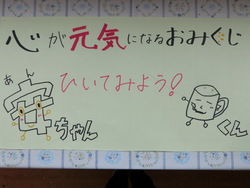 心が元気になるおみくじ
ひいてみよう!
あん
ちゃん
くん